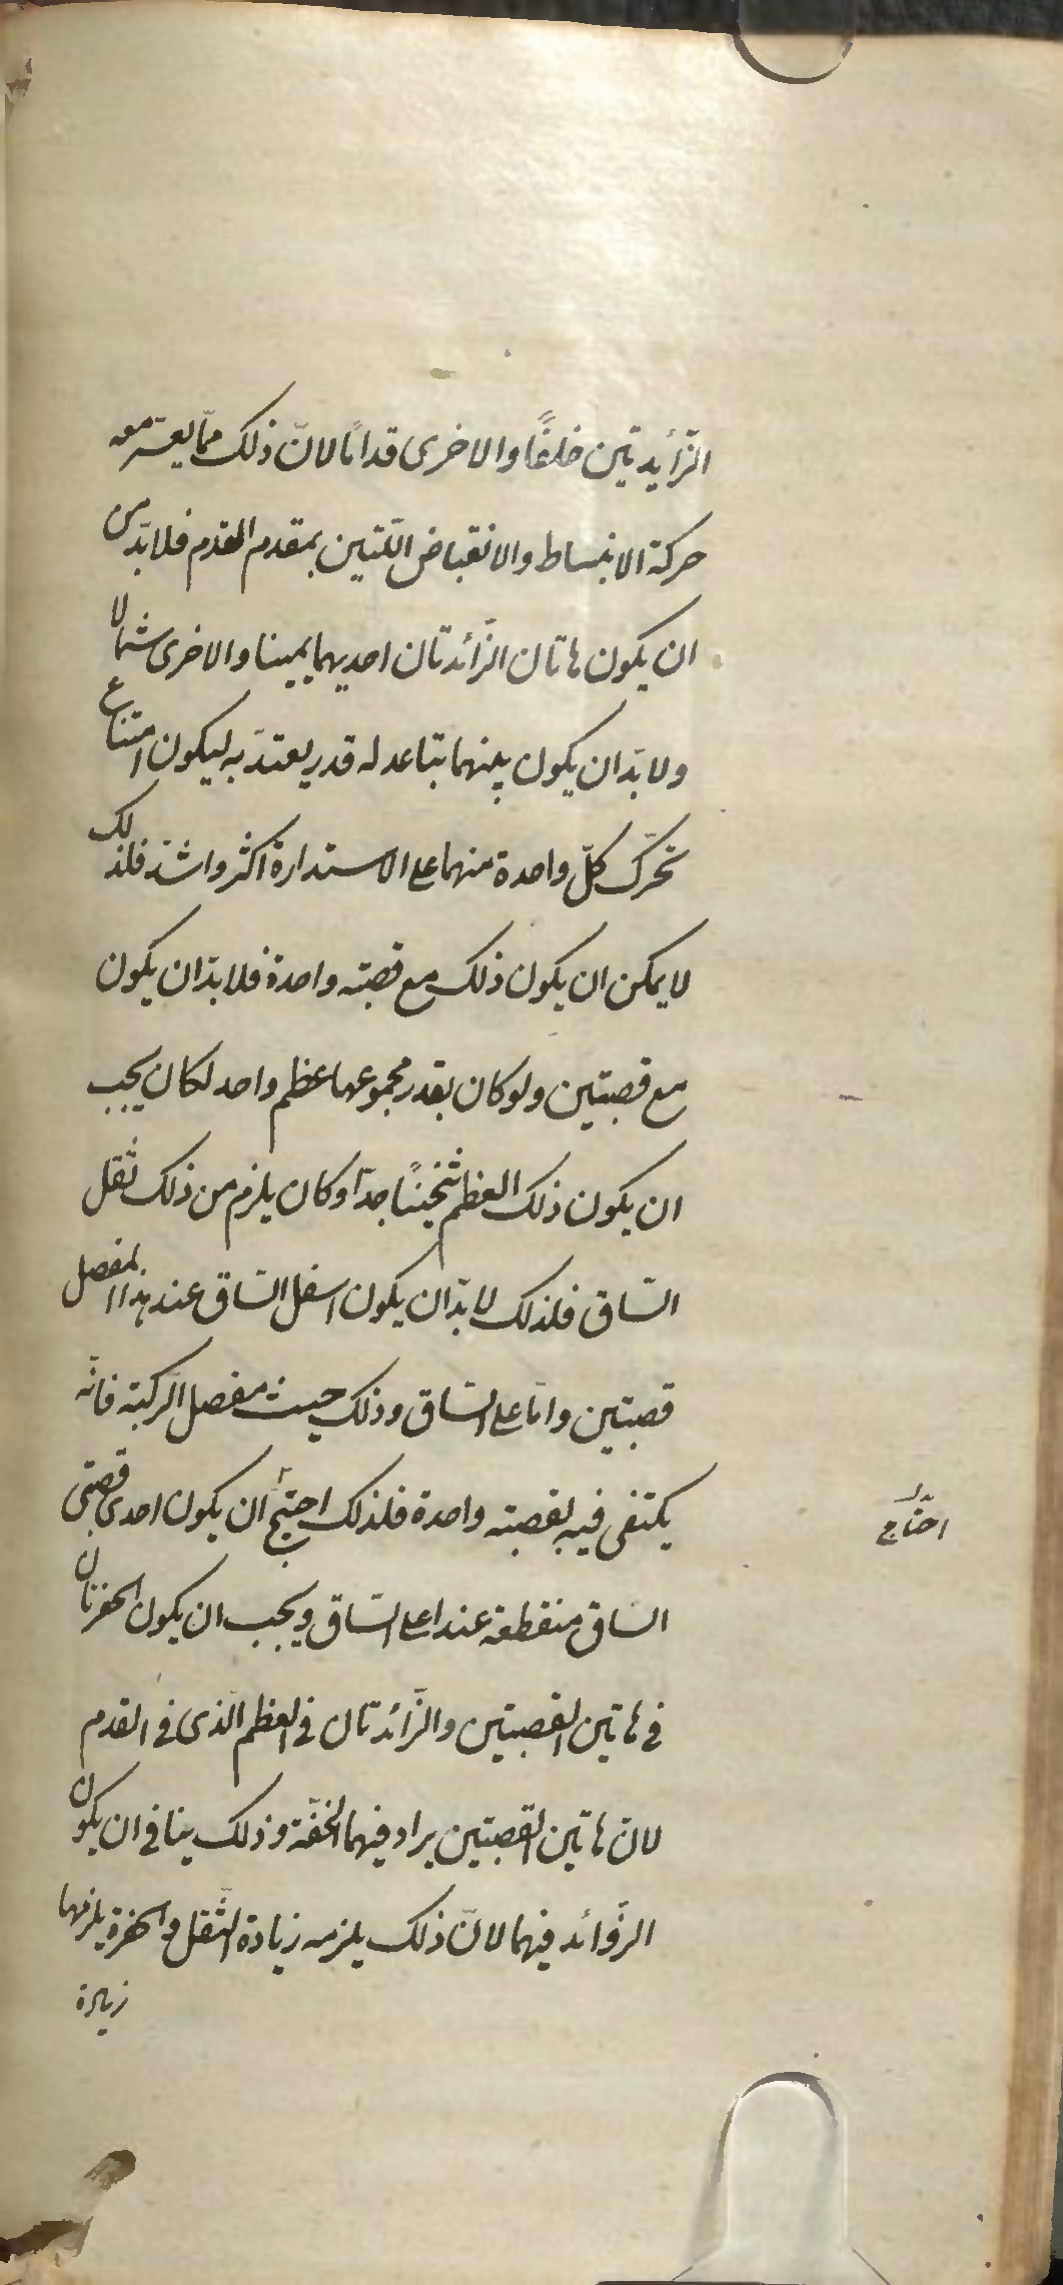 الزّأيدتين خلفًا والاخرى قدامًا لانّ ذلك ممّا يعسّر معه
حركة الانبساط والانقباض اللّتين بمقدم القدم فلابدّ من
ان يكون هاتان الزّائدتان احديهما يمينا والاخرى شمالا
ولابدّ ان يكون بينهما بتاعد له قدر يعتدّ به ليكون امتناع
تحرّك كلّ واحدة منهما على الاستدارة اكثر واشدّ فلذلك
لا يمكن ان يكون ذلك مع قصبته واحدة فلابدّ ان يكون
مع قصبتين ولو كان بقدر مجموعهما عظم واحد لكان يجب
ان يكون ذلك العظم ثخينًا جدّا وكان يلزم من ذلك ثقل
السّاق فلذلك لابدّ ان يكون اسفل السّاق عند هذا المفصل
قصبتين وامّا على السّاق وذلك حيث مفصل الرّكبته فانّه
يكتفى فيه بقصبته واحدة فلذلك احتيج ان يكون احدى قصبتى
احتاج
السّاق منقطعة عند اعلى السّاق ويجب ان يكون الحفرتان
فى هاتين القصبتين والزّائدتان فى العظم الّذى فى القدم
لانّ هاتين القصبتين يراد فيهما الخفّة وذلك ينافى ان يكون
الزّوائد فيهما لانّ ذلك يلزمه زيادة الثّقل والحفرة يلزمها
زيادة